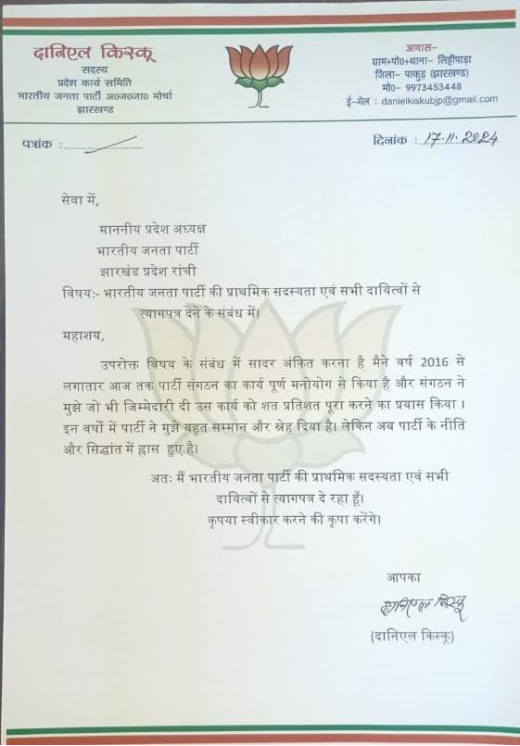 दानिएल किस्कू
सदस्य
प्रदेश कार्य समिति
भारतीय जनता पार्टी अ०ज०जा० मोर्चा
झारखण्ड
आवास-
ग्राम+पो०+थाना- लिट्टीपाड़ा
जिला- पाकुड़ (झारखण्ड)
मो०- 9973453448
ई-मेल : danielkiskubjp@gmail.com
पत्रांक :
दिनांक : 17.11.2024
सेवा में,
माननीय प्रदेश अध्यक्ष
भारतीय जनता पार्टी
झारखंड प्रदेश रांची
विषय:- भारतीय जनता पार्टी की प्राथमिक सदस्यता एवं सभी दायित्वों से
त्यागपत्र देने के संबंध में।
महाशय,
उपरोक्त विषय के संबंध में सादर अंकित करना है मैने वर्ष 2016 से
लगातार आज तक पार्टी संगठन का कार्य पूर्ण मनोयोग से किया है और संगठन ने
मुझे जो भी जिम्मेदारी दी उस कार्य को शत प्रतिशत पूरा करने का प्रयास किया ।
इन वर्षों में पार्टी ने मुझे बहुत सम्मान और स्नेह दिया है। लेकिन अब पार्टी के नीति
और सिद्धांत में ह्रास हुए है।
अत: मैं भारतीय जनता पार्टी की प्राथमिक सदस्यता एवं सभी
दायित्वों से त्यागपत्र दे रहा हूँ।
कृपया स्वीकार करने की कृपा करेंगे।
आपका
दानिएल किस्कू
(दानिएल किस्कू)